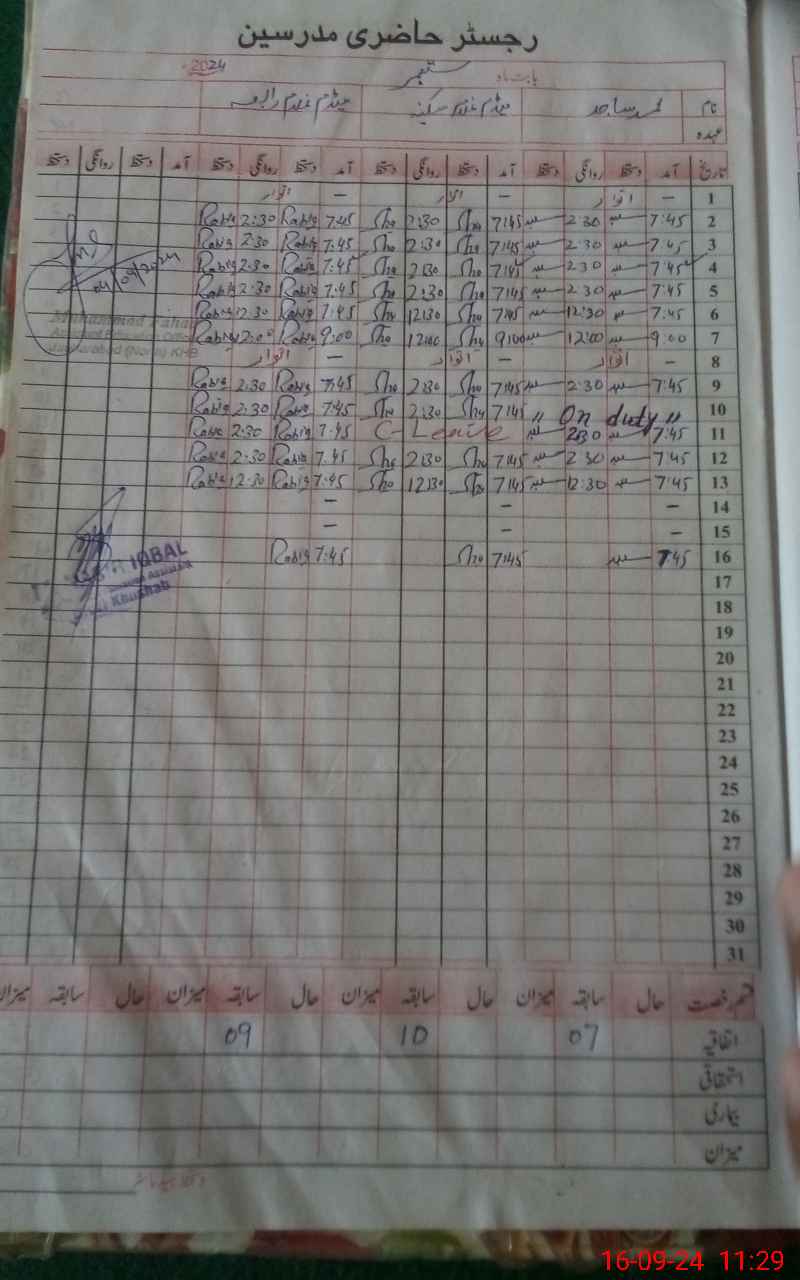 رجسٹر حاضری مدرسین
بابت ماہ ستمبر 2024
نام محمد ساجد میڈم غلام سکینہ میڈم غلام رابعہ
عہدہ
تاریخ آمد دستخط روانگی دستخط آمد دستخط روانگی دستخط آمد دستخط روانگی دستخط آمد دستخط روانگی دستخط
1 — اتوار — اتوار — اتوار
2 7:45 2:30 7:45 Sha 2:30 Sha 7:45 Rabia 2:30 Rabia
3 7:45 2:30 7:45 Sha 2:30 Sha 7:45 Rabia 2:30 Rabia
4 7:45 2:30 7:45 Sha 2:30 Sha 7:45 Rabia 2:30 Rabia
5 7:45 2:30 7:45 Sha 2:30 Sha 7:45 Rabia 2:30 Rabia
6 7:45 12:30 7:45 Sha 12:30 Sha 7:45 Rabia 12:30 Rabia
7 9:00 12:00 9:00 Sha 12:00 Sha 9:00 Rabia 12:00 Rabia
8 اتوار — اتوار — اتوار
9 7:45 2:30 7:45 Sha 2:30 Sha 7:45 Rabia 2:30 Rabia
10 " On duty " 7:45 Sha 2:30 Sha 7:45 Rabia 2:30 Rabia
11 7:45 2:30 C-Leave 7:45 Rabia 2:30 Rabia
12 7:45 2:30 7:45 Sha 2:30 Sha 7:45 Rabia 2:30 Rabia
13 7:45 12:30 7:45 Sha 12:30 Sha 7:45 Rabia 12:30 Rabia
14 — — —
15 — — —
16 7:45 7:45 Sha 7:45 Rabia
17
18
19
20
21
22
23
24
25
26
27
28
29
30
31
04/09/2024
Muhammad
Assistant Education
(North) KHB
IQBAL
Khushab
قسم رخصت حال سابقہ میزان حال سابقہ میزان حال سابقہ میزان حال سابقہ میزان
اتفاقیہ 07 10 09
استحقاقی
بیماری
میزان
16-09-24 11:29